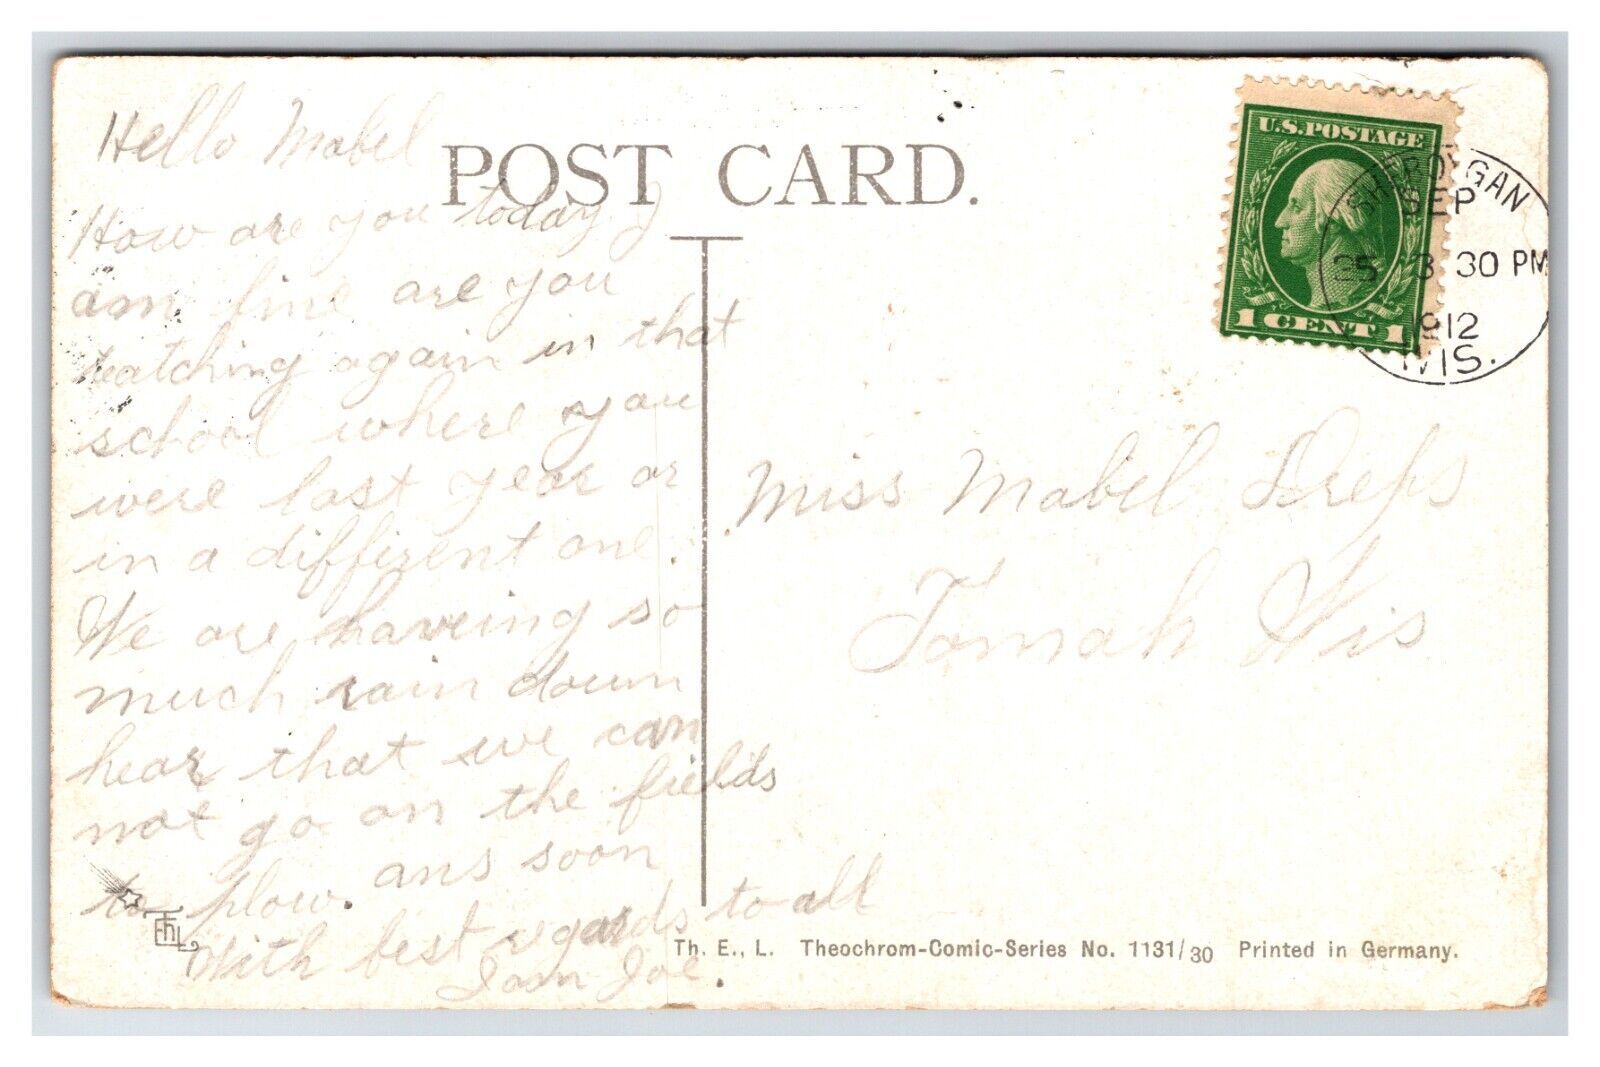 Hello Mabel
How are you today I
am fine are you
teatching again in that
school where you
were last year or
in a diffirent one.
We are haveing so
much rain down
hear that we can
not go on the fields
to plow. ans soon
With best regards to all
I am Joe.
POST CARD.
U.S. POSTAGE
1 CENT 1
SHEBOYGAN
SEP
25 3 30 PM
1912
WIS.
Miss Mabel Dreps
Tomah Wis
Th. E., L. Theochrom-Comic-Series No. 1131/30 Printed in Germany.